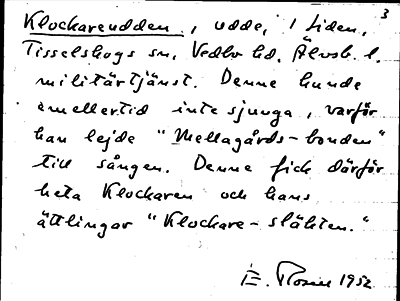 3
Klockareudden, udde, i Liden,
Tisselskogs sn, Vedbo hd, Älvsb. l.
militärtjänst. Denne kunde
emellertid inte sjunga, varför
han lejde "Mellagårds-bonden"
till sången. Denne fick därför
heta Klockaren och hans
ättlingar "Klockare-släkten."
E. Rosell 1952